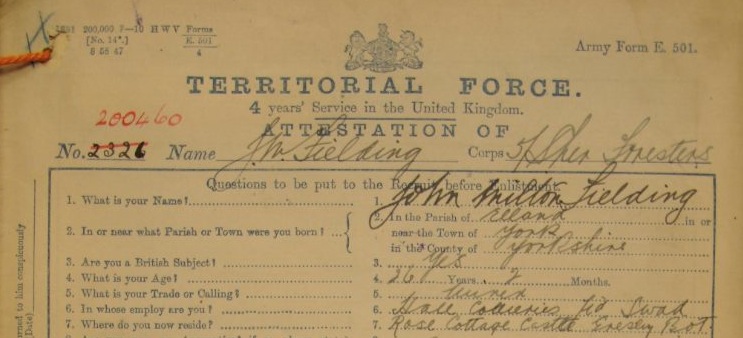 200,000 7—10 HWV Forms
[No. 14*.] E. 501.
8 58 47 4
Army Form E. 501.
TERRITORIAL FORCE.
4 years' Service in the United Kingdom.
200460
ATTESTATION OF
No. 2326 Name J. M. Fielding Corps 5/Sher Foresters
Questions to be put to the Recruit before Enlistment.
1. What is your Name? 1. John Milton Fielding
2. In or near what Parish or Town were you born? 2. In the Parish of Elland in or
near the Town of York
in the County of Yorkshire
3. Are you a British Subject? 3. Yes
4. What is your Age? 4. 26 Years 2 Months.
5. What is your Trade or Calling? 5. Miner
6. In whose employ are you? 6. Hall Collieries Ltd Swad
7. Where do you now reside? 7. Rose Cottage Castle Gresley Bot.
erned to him conspicuously
Date)